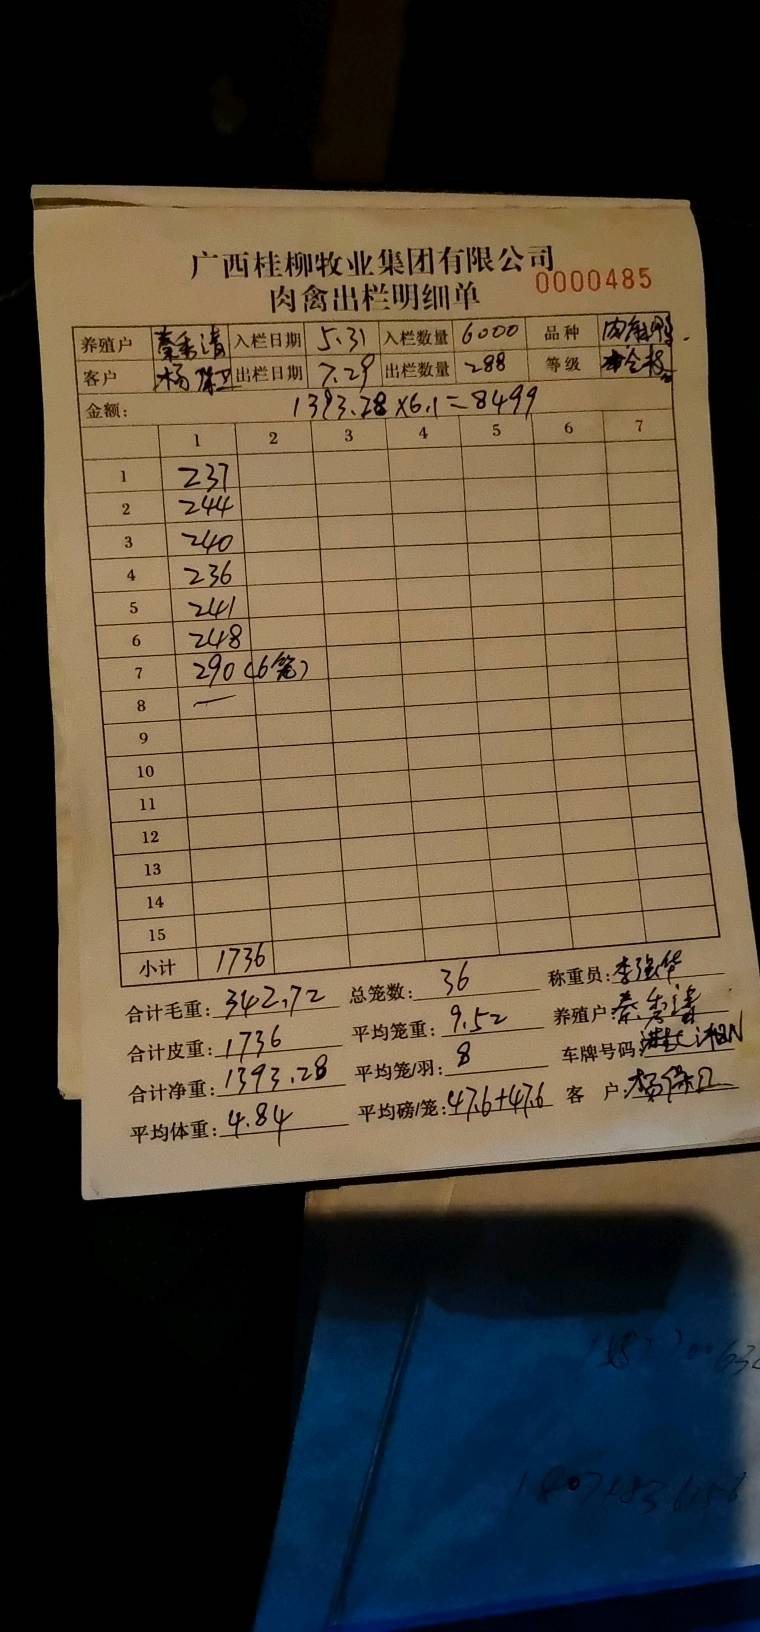 广西桂柳牧业集团有限公司
0000485
肉禽出栏明细单
养殖户 秦秀清 入栏日期 5.31 入栏数量 6000 品种
客户 杨 出栏日期 7.29 出栏数量 288 等级 合格
金额: 1393.28×6.1=8499
1 2 3 4 5 6 7
1 237
2 244
3 240
4 236
5 241
6 248
7 290(6笼)
8 —
9
10
11
12
13
14
15
小计 1736
合计毛重: 342.72 总笼数: 36 称重员: 李强华
合计皮重: 1736 平均笼重: 9.52 养殖户: 秦秀清
合计净重: 1393.28 平均笼/羽: 8 车牌号码:
平均体重: 4.84 平均磅/笼: 47.6+47.6 客 户: 杨